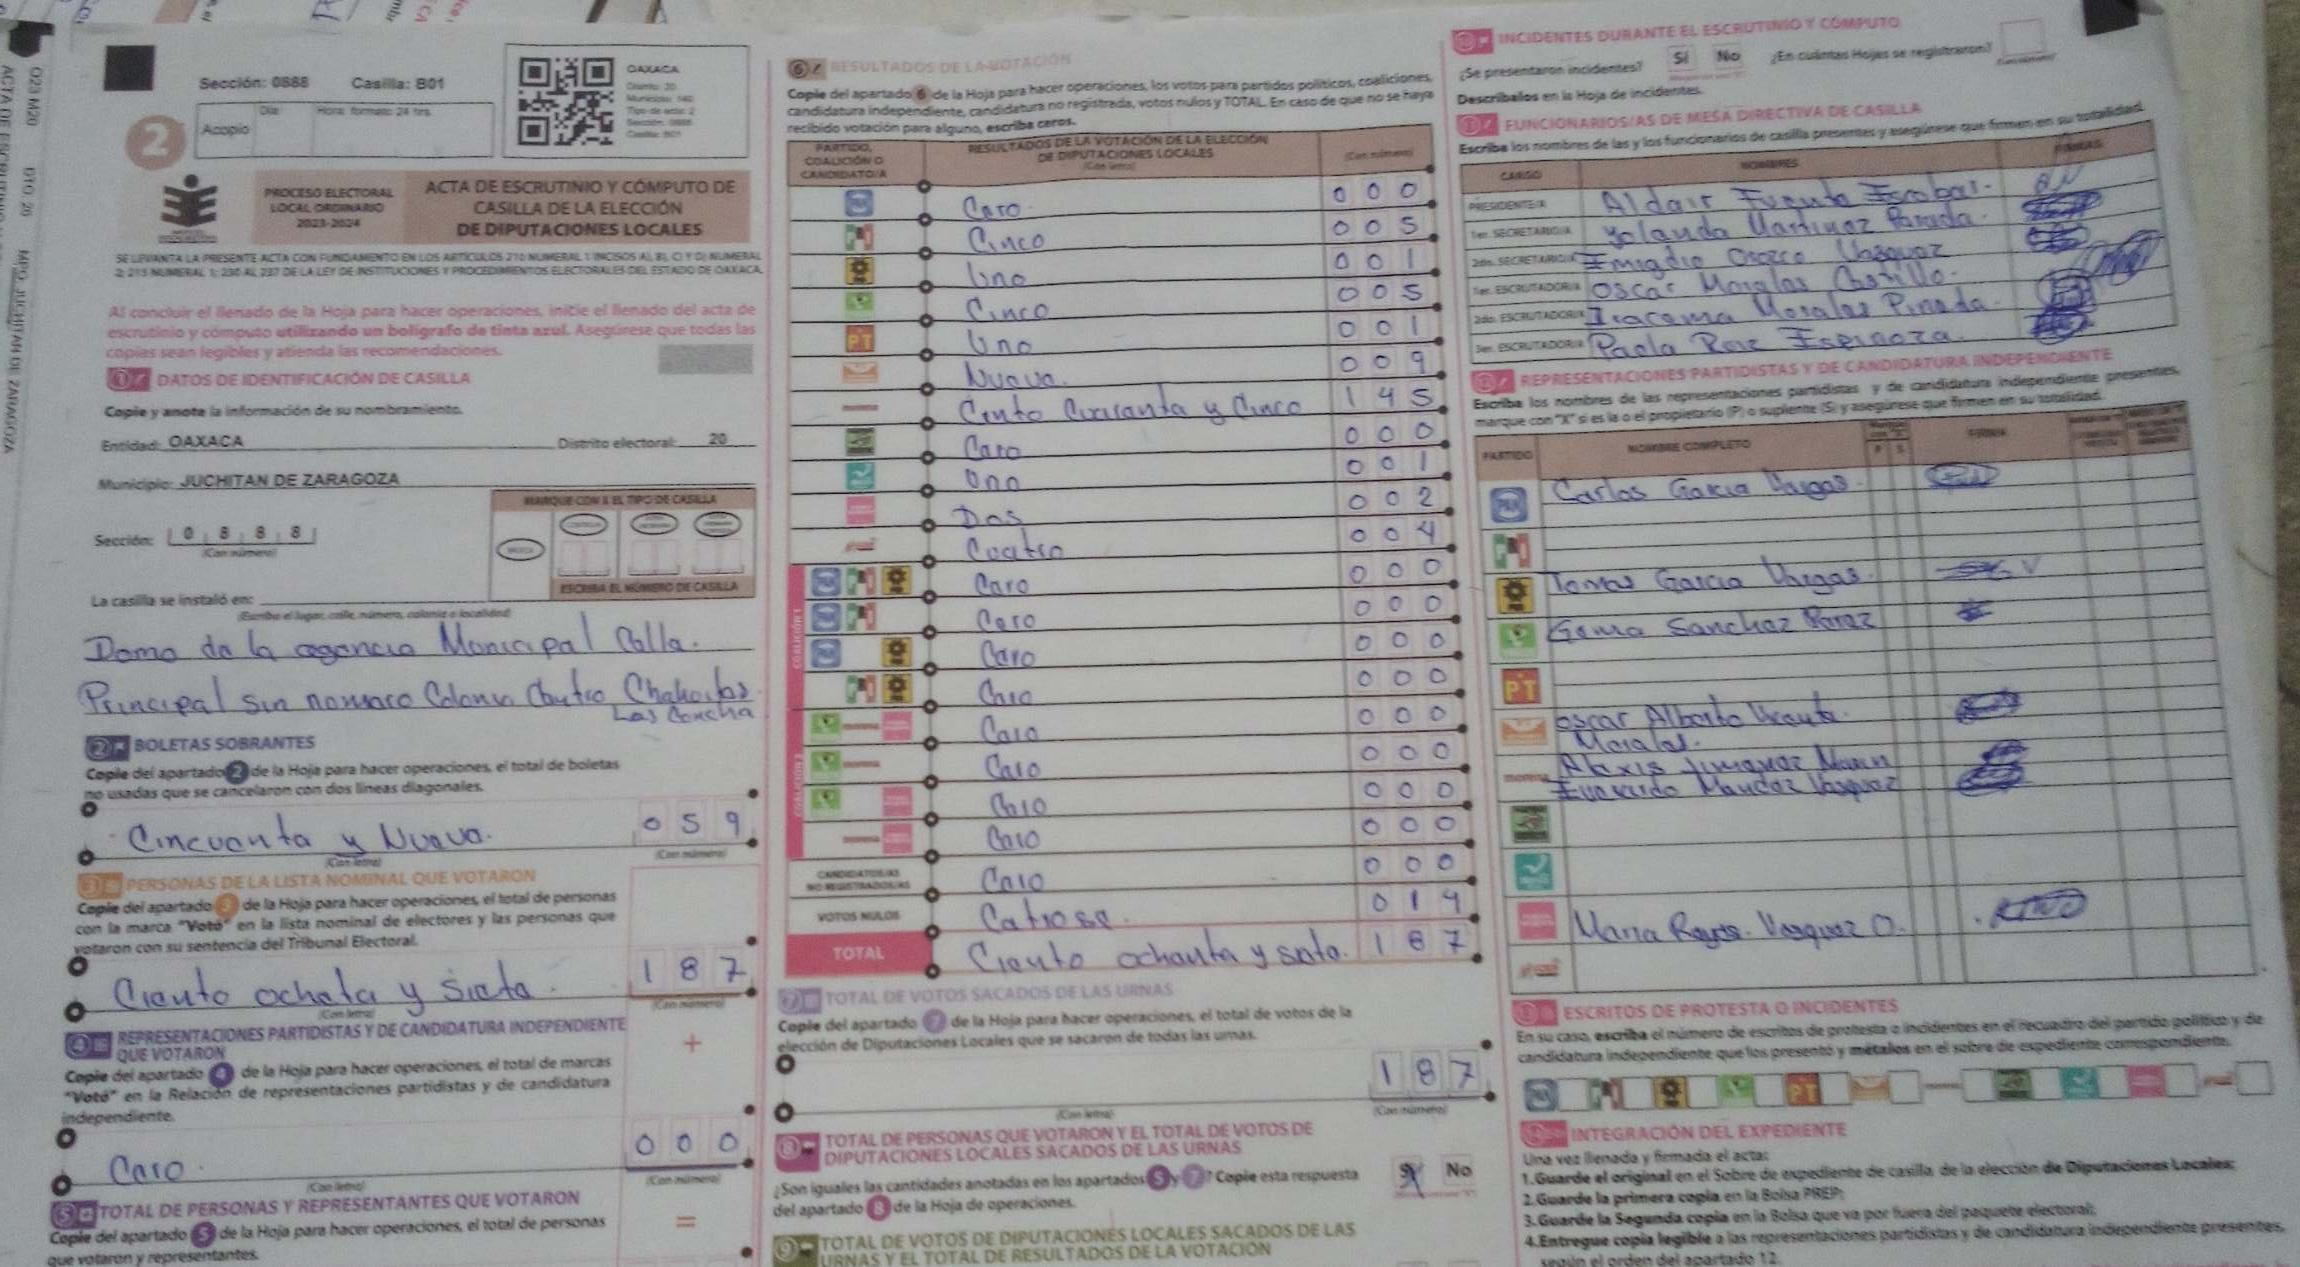 O23 M20 DTO 20 MPO. JUCHITAN DE ZARAGOZA
Sección: 0888 Casilla: B01
Día Hora: formato: 24 hrs.
Acopio
OAXACA
Distrito: 20
Tipo de acta: 2
Sección: 0888
Casilla: B01
2
PROCESO ELECTORAL
LOCAL ORDINARIO
2023-2024
ACTA DE ESCRUTINIO Y CÓMPUTO DE
CASILLA DE LA ELECCIÓN
DE DIPUTACIONES LOCALES
SE LEVANTA LA PRESENTE ACTA CON FUNDAMENTO EN LOS ARTÍCULOS 210 NUMERAL 1 INCISOS A), B), C) Y D) NUMERAL
2; 215 NUMERAL 1; 236 AL 237 DE LA LEY DE INSTITUCIONES Y PROCEDIMIENTOS ELECTORALES DEL ESTADO DE OAXACA.
Al concluir el llenado de la Hoja para hacer operaciones, inicie el llenado del acta de
escrutinio y cómputo utilizando un bolígrafo de tinta azul. Asegúrese que todas las
copias sean legibles y atienda las recomendaciones.
1 DATOS DE IDENTIFICACIÓN DE CASILLA
Copie y anote la información de su nombramiento.
Entidad: OAXACA Distrito electoral: 20
Municipio: JUCHITAN DE ZARAGOZA
Sección: 0 8 8 8
(Con número)
MARQUE CON X EL TIPO DE CASILLA
ESCRIBA EL NÚMERO DE CASILLA
La casilla se instaló en:
(Escriba el lugar, calle, número, colonia o localidad)
Domo de la agencia Municipal Calle.
Principal sin numero Colonia Centro
Las Concha
2 BOLETAS SOBRANTES
Copie del apartado 2 de la Hoja para hacer operaciones, el total de boletas
no usadas que se cancelaron con dos líneas diagonales.
Cincuenta y Nueve. 0 5 9
(Con letra) (Con número)
3 PERSONAS DE LA LISTA NOMINAL QUE VOTARON
Copie del apartado 3 de la Hoja para hacer operaciones, el total de personas
con la marca "Votó" en la lista nominal de electores y las personas que
votaron con su sentencia del Tribunal Electoral.
Ciento ocheta y Siete. 1 8 7
(Con letra) (Con número)
4 REPRESENTACIONES PARTIDISTAS Y DE CANDIDATURA INDEPENDIENTE
QUE VOTARON
Copie del apartado 4 de la Hoja para hacer operaciones, el total de marcas
"Votó" en la Relación de representaciones partidistas y de candidatura
independiente.
+
Cero. 0 0 0
(Con letra) (Con número)
5 TOTAL DE PERSONAS Y REPRESENTANTES QUE VOTARON
Copie del apartado 5 de la Hoja para hacer operaciones, el total de personas
que votaron y representantes.
=
6 RESULTADOS DE LA VOTACIÓN
Copie del apartado 6 de la Hoja para hacer operaciones, los votos para partidos políticos, coaliciones,
candidatura independiente, candidatura no registrada, votos nulos y TOTAL. En caso de que no se haya
recibido votación para alguno, escriba ceros.
PARTIDO,
COALICIÓN O
CANDIDATO/A
RESULTADOS DE LA VOTACIÓN DE LA ELECCIÓN
DE DIPUTACIONES LOCALES
(Con letra)
(Con número)
Cero 0 0 0
Cinco 0 0 5
Uno 0 0 1
Cinco 0 0 5
PT Uno 0 0 1
Nueve. 0 0 9
morena Ciento Cuaranta y Cinco 1 4 5
Cero 0 0 0
Uno 0 0 1
Dos 0 0 2
Cuatro 0 0 4
COALICIÓN 1
Cero 0 0 0
Cero 0 0 0
Cero 0 0 0
Cero 0 0 0
COALICIÓN 2
morena Cero 0 0 0
morena Cero 0 0 0
Cero 0 0 0
morena Cero 0 0 0
CANDIDATOS/AS
NO REGISTRADOS/AS
Cero 0 0 0
VOTOS NULOS Catrose. 0 1 4
TOTAL Ciento ochenta y siete. 1 8 7
7 TOTAL DE VOTOS SACADOS DE LAS URNAS
Copie del apartado 7 de la Hoja para hacer operaciones, el total de votos de la
elección de Diputaciones Locales que se sacaron de todas las urnas.
1 8 7
(Con letra) (Con número)
8 TOTAL DE PERSONAS QUE VOTARON Y EL TOTAL DE VOTOS DE
DIPUTACIONES LOCALES SACADOS DE LAS URNAS
¿Son iguales las cantidades anotadas en los apartados 5 y 7? Copie esta respuesta
del apartado 8 de la Hoja de operaciones.
Sí No
9 TOTAL DE VOTOS DE DIPUTACIONES LOCALES SACADOS DE LAS
URNAS Y EL TOTAL DE RESULTADOS DE LA VOTACIÓN
10 INCIDENTES DURANTE EL ESCRUTINIO Y CÓMPUTO
¿Se presentaron incidentes? Sí No ¿En cuántas Hojas se registraron?
Descríbalos en la Hoja de incidentes.
11 FUNCIONARIOS/AS DE MESA DIRECTIVA DE CASILLA
Escriba los nombres de las y los funcionarios de casilla presentes y asegúrese que firmen en su totalidad.
CARGO NOMBRES FIRMAS
PRESIDENTE/A Aldair Fuente Escobar.
1er. SECRETARIO/A Yolanda Martinez Parada.
2do. SECRETARIO/A Emigdio Orozco Vasquez
1er. ESCRUTADOR/A Oscar Morales Castillo.
2do. ESCRUTADOR/A Iracema Morales Pineda.
3er. ESCRUTADOR/A Paola Ruiz Espinoza.
12 REPRESENTACIONES PARTIDISTAS Y DE CANDIDATURA INDEPENDIENTE
Escriba los nombres de las representaciones partidistas y de candidatura independiente presentes,
marque con "X" si es la o el propietario (P) o suplente (S) y asegúrese que firmen en su totalidad.
PARTIDO NOMBRE COMPLETO P S FIRMA
PAN Carlos Garcia Vargas.
Tomas Garcia Vargas.
Gema Sanchez Perez
PT
Oscar Alberto Vicente.
Morales.
morena Alexis Jimenez Marin
Everardo Mendez Vasquez
Maria Reyes. Vasquez O.
13 ESCRITOS DE PROTESTA O INCIDENTES
En su caso, escriba el número de escritos de protesta o incidentes en el recuadro del partido político y de
candidatura independiente que los presentó y métalos en el sobre de expediente correspondiente.
PT
14 INTEGRACIÓN DEL EXPEDIENTE
Una vez llenada y firmada el acta:
1.Guarde el original en el Sobre de expediente de casilla de la elección de Diputaciones Locales;
2.Guarde la primera copia en la Bolsa PREP;
3.Guarde la Segunda copia en la Bolsa que va por fuera del paquete electoral;
4.Entregue copia legible a las representaciones partidistas y de candidatura independiente presentes,
según el orden del apartado 12.